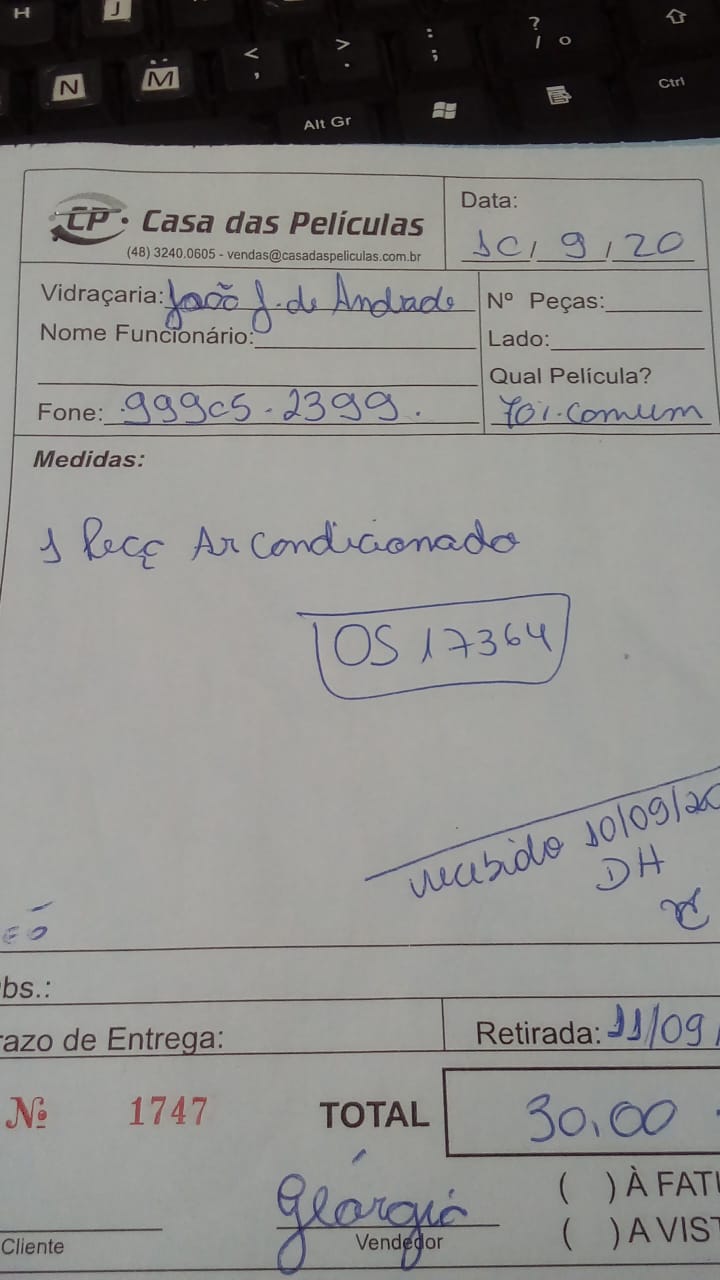 H J
N M < , > . : ; ? / o
Alt Gr Ctrl
CP Casa das Películas
(48) 3240.0605 - vendas@casadaspeliculas.com.br
Data:
10, 9, 20
Vidraçaria: João J. de Andrade
Nº Peças:
Nome Funcionário:
Lado:
Qual Película?
Fone: 99905-2399.
70%. comum
Medidas:
1 Peç Ar Condicionado
OS 17364
recebido 10/09/20
DH
bs.:
razo de Entrega:
Retirada: 11/09
Nº 1747
TOTAL
30,00
Geórgia
( ) À FAT
Cliente
Vendedor
( ) A VIST